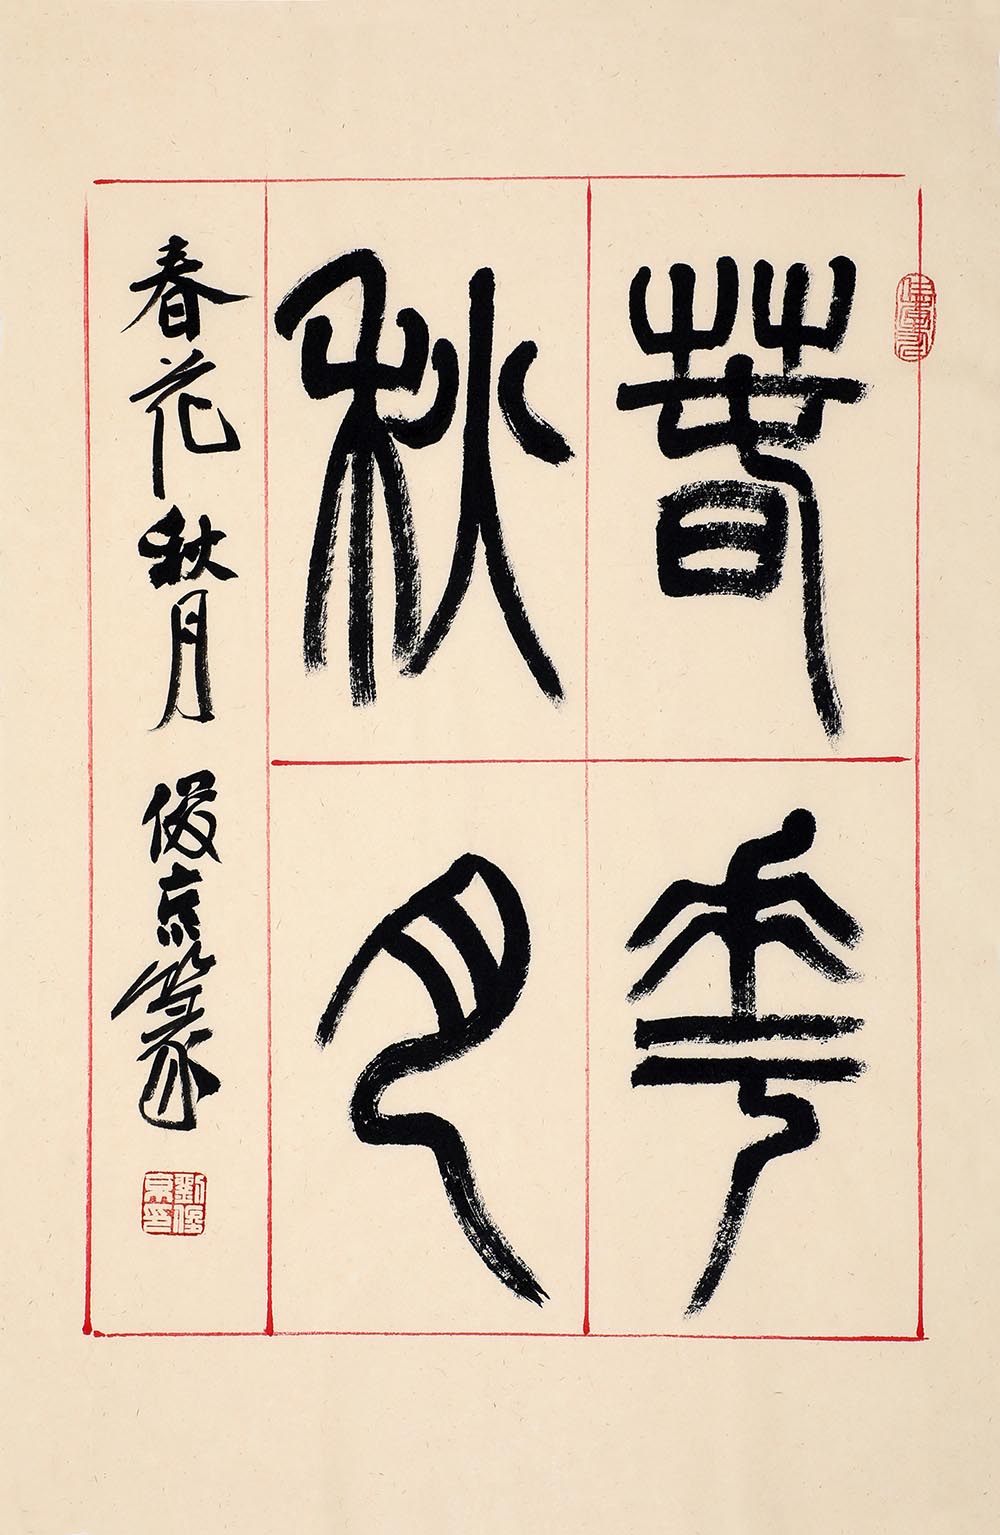 春花
秋月
春花秋月 俊京篆
劉俊京印